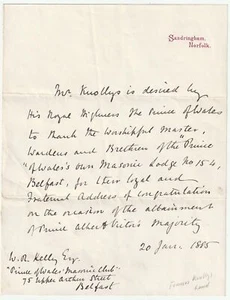 Sandringham,
Norfolk.
Mr. Knollys is desired by
His Royal Highness the Prince of Wales
to thank the Worshipful Master,
Wardens and Brethren of the "Prince
of Wales's own Masonic Lodge No 154,
Belfast, for their loyal and
Fraternal Address of congratulation
on the occasion of the attainment
of Prince Albert Victor's Majority
20 Jany 1885
W. R. Kelly Esq.
Prince of Wales Masonic Club
75 Upper Arthur Street
Belfast
Francis Knollys